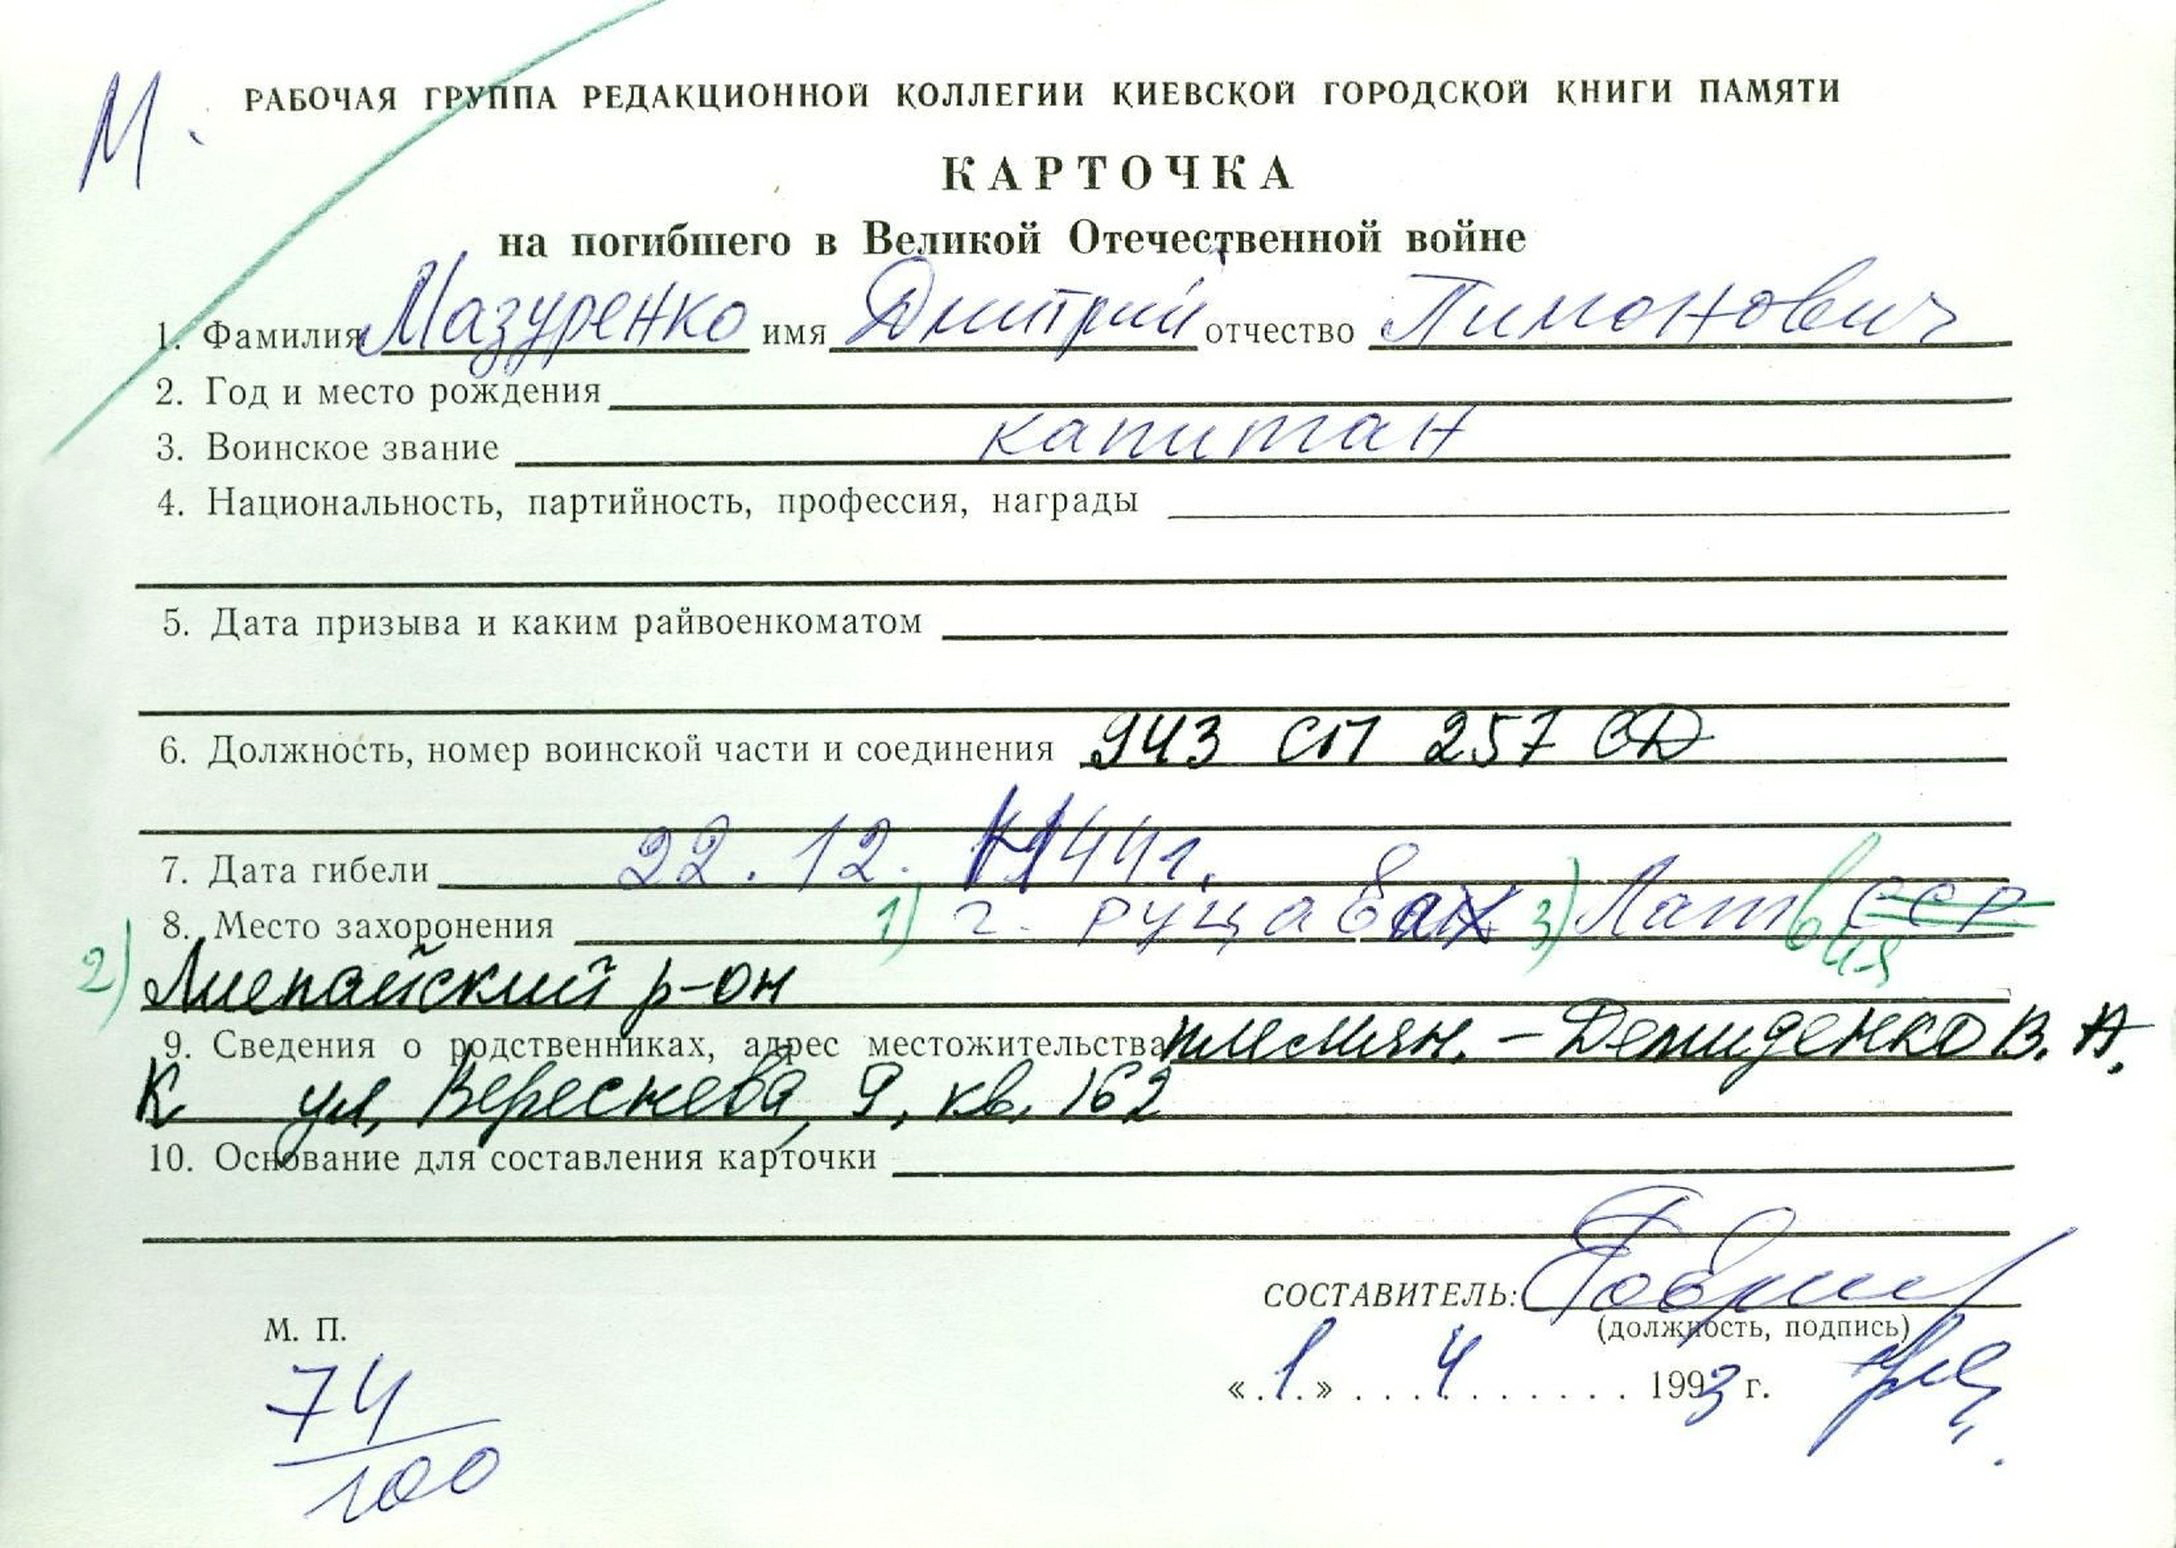 М.
РАБОЧАЯ ГРУППА РЕДАКЦИОННОЙ КОЛЛЕГИИ КИЕВСКОЙ ГОРОДСКОЙ КНИГИ ПАМЯТИ
КАРТОЧКА
на погибшего в Великой Отечественной войне
1. Фамилия Мазуренко имя Дмитрий отчество Пимонович
2. Год и место рождения
3. Воинское звание капитан
4. Национальность, партийность, профессия, награды
5. Дата призыва и каким райвоенкоматом
6. Должность, номер воинской части и соединения 943 СП 257 СД
7. Дата гибели 22.12. 1944г.
8. Место захоронения 1) г. Руцава 3) Латвия ССР
2) Лиепайский р-он
9. Сведения о родственниках, адрес местожительства племян. – Демиденко В. А.
К ул. Вереснева, 9, кв. 162
10. Основание для составления карточки
СОСТАВИТЕЛЬ:
(должность, подпись)
М. П.
«1» 4 1993 г.
74
100